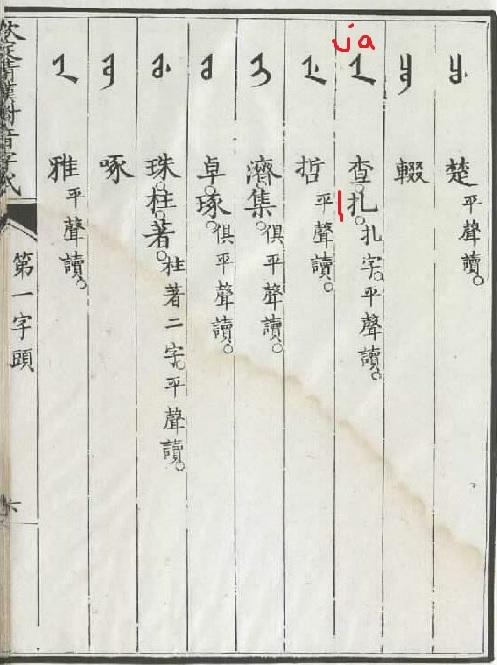 ja
ᠴᡠ 楚平聲讀。
ᠴᡡ 輟
ᠵᠠ 查。扎。扎字。平聲讀。
ᠵᡝ 哲平聲讀。
ᠵᡳ 濟。集。俱平聲讀。
ᠵᠣ 卓。琢。俱平聲讀。
ᠵᡠ 珠。柱。著。柱著二字。平聲讀。
ᠵᡡ 啄
ᠶᠠ 雅平聲讀。
欽定清漢對音字式
第一字頭
六